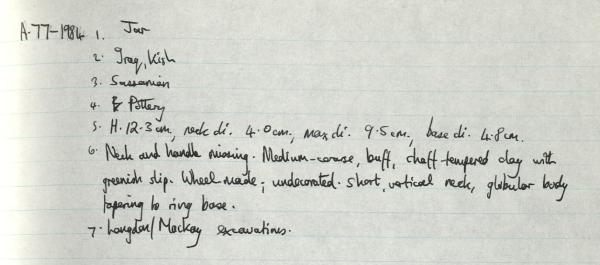 A.77-1984 1. Jar
2. Iraq, Kish
3. Sassanian
4. Pottery
5. H. 12.3cm, neck di. 4.0cm, max di. 9.5cm, base di. 4.8cm.
6. Neck and handle missing. Medium-coarse, buff, chaff-tempered clay with
greenish slip. Wheel made; undecorated. Short, vertical neck, globular body
tapering to ring base.
7. Langdon/Mackay excavations.